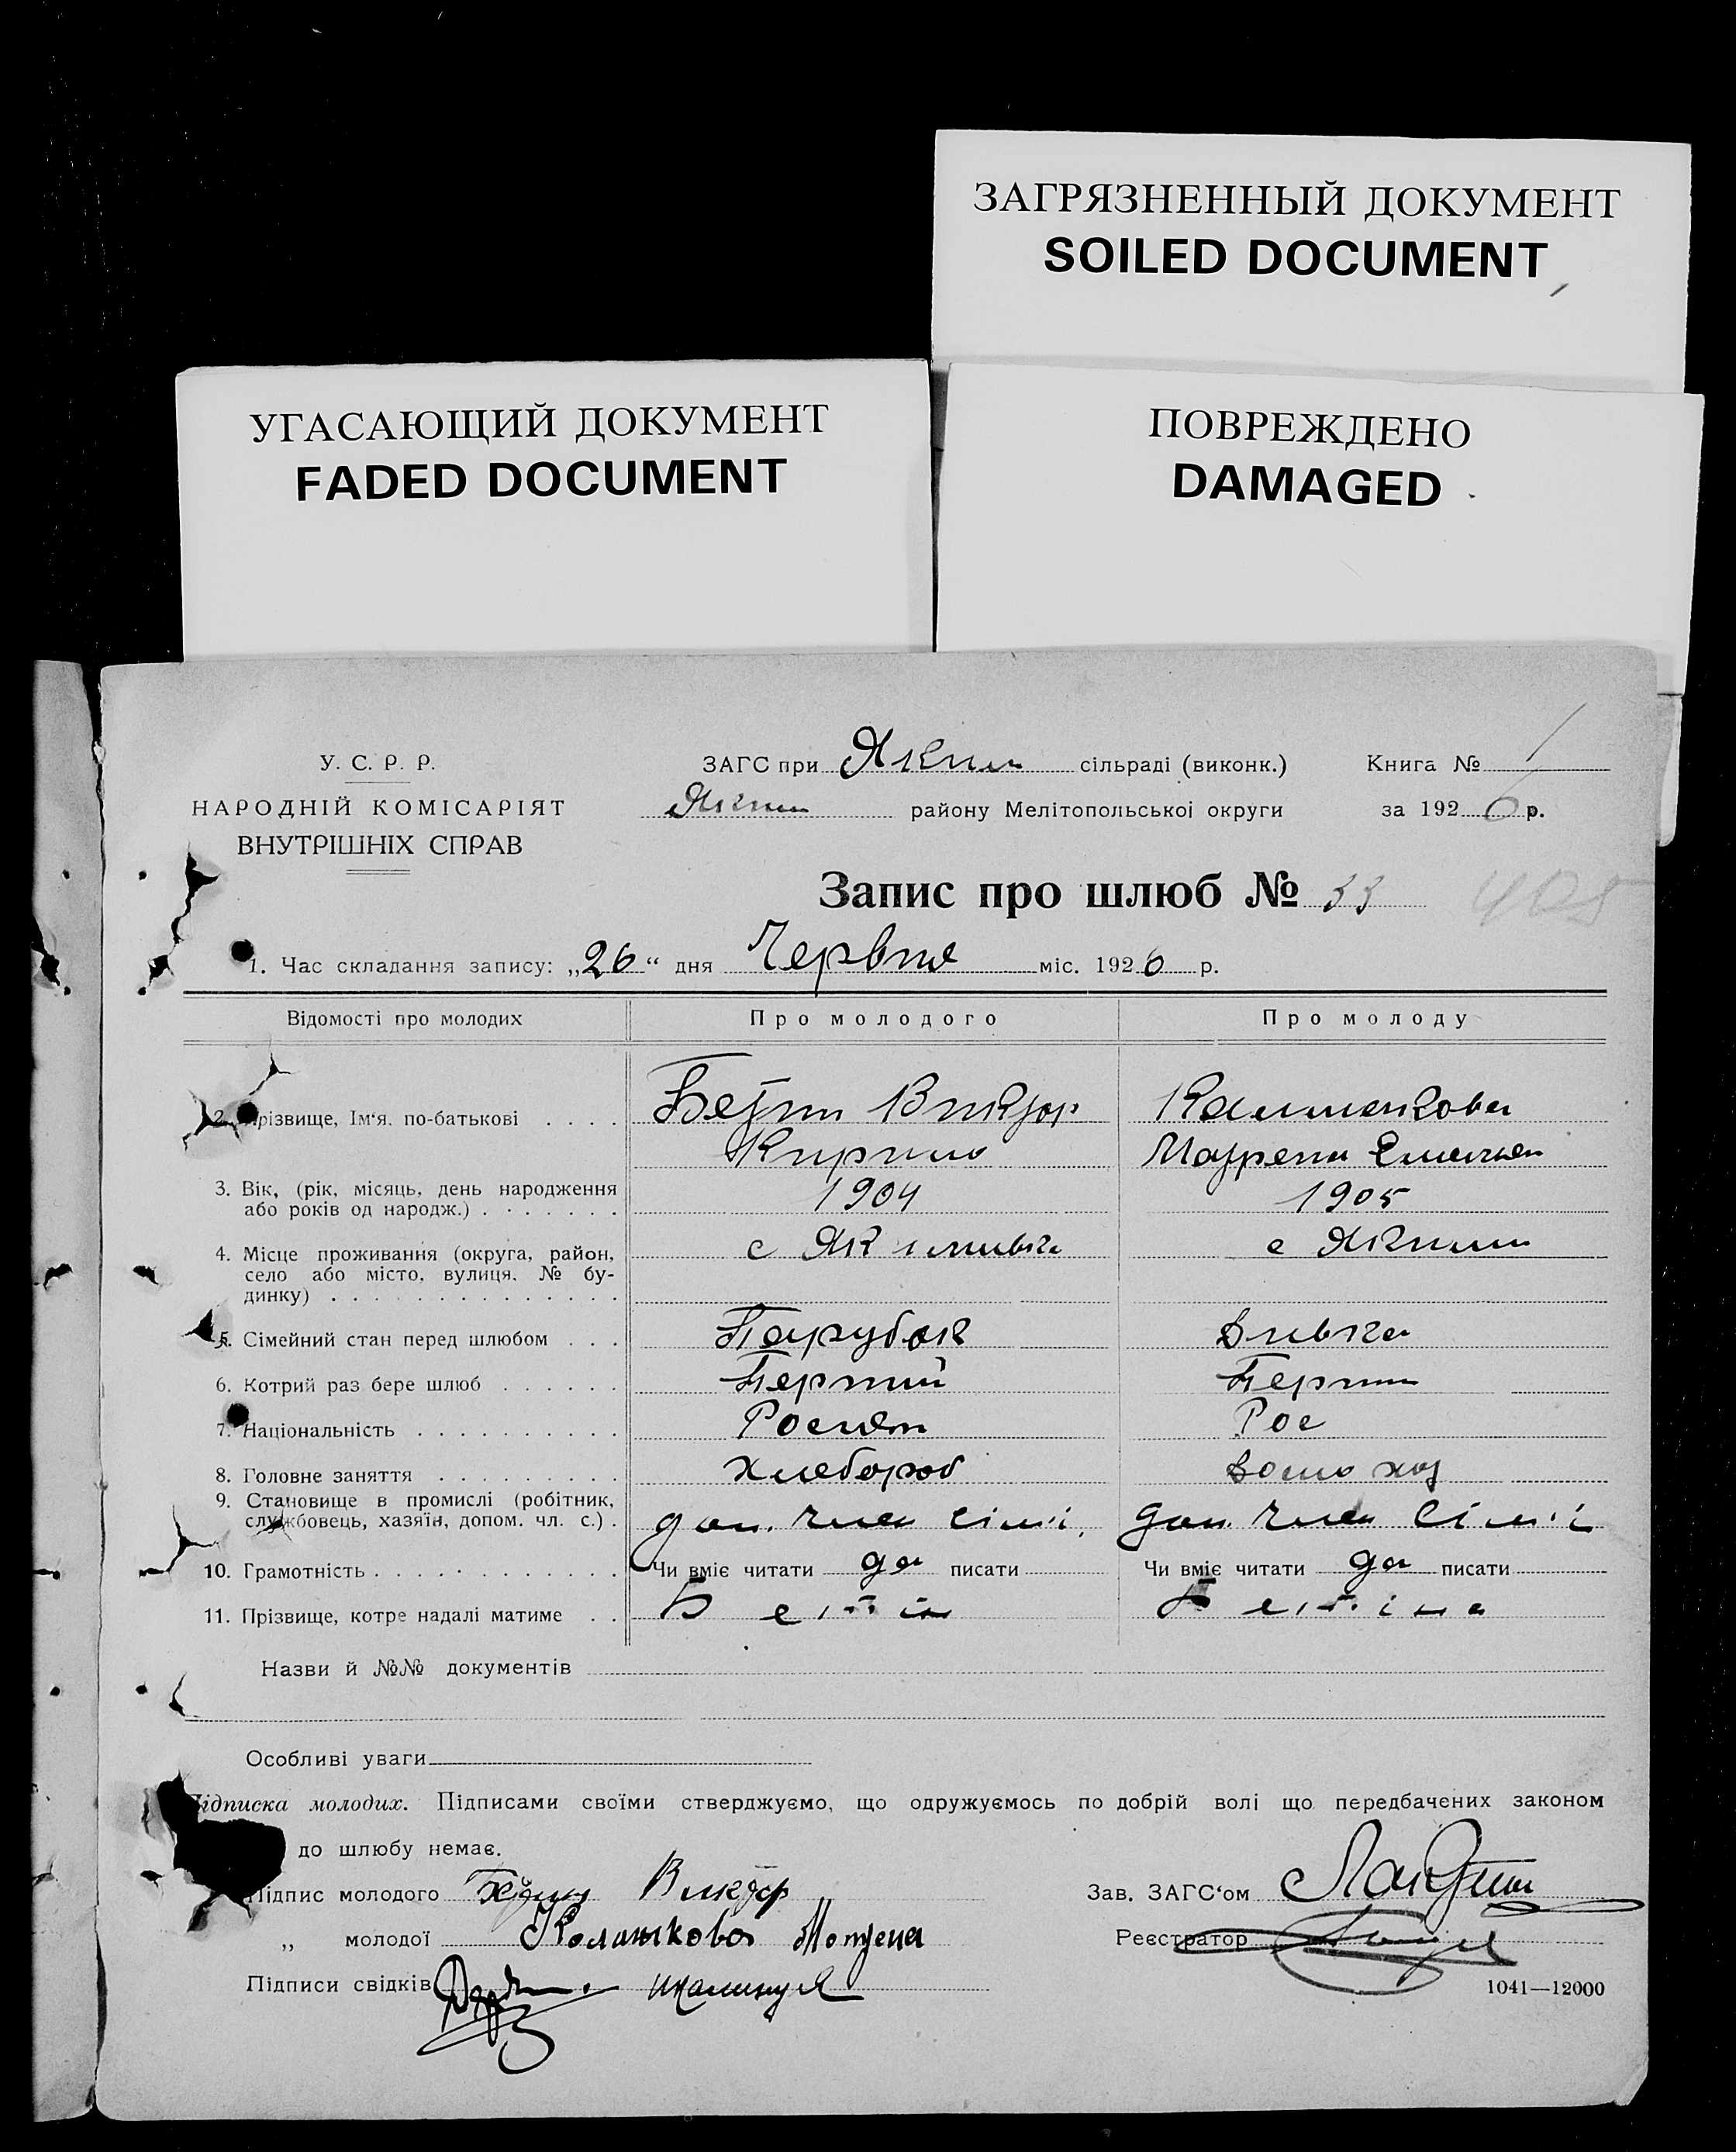 ЗАГРЯЗНЕННЫЙ ДОКУМЕНТ
SOILED DOCUMENT
УГАСАЮЩИЙ ДОКУМЕНТ
FADED DOCUMENT
ПОВРЕЖДЕНО
DAMAGED
У. С. Р. Р.
НАРОДНІЙ КОМІСАРІЯТ
ВНУТРІШНІХ СПРАВ
ЗАГС при Яким сільраді (виконк.)
Яким району Мелітопольської округи
Книга № 1
за 1926 р.
Запис про шлюб № 33
405
1. Час складання запису: „26“ дня Червня міс. 1926 р.
Відомості про молодих Про молодого Про молоду
2. Прізвище, Ім'я, по-батькові . . . .
Виктор
Кирило
3. Вік, (рік, місяць, день народження
або років од народж.) . . . . . . . 1904 1905
4. Місце проживання (округа, район,
село або місто, вулиця, № бу-
динку) . . . . . . . . . . . . . .
с Якимивка с Якими
5. Сімейний стан перед шлюбом . . . Парубок Дивка
6. Котрий раз бере шлюб . . . . . . Перший Перши
7. Національність . . . . . . . . . . Росият Рос
8. Головне заняття . . . . . . . . . Хлебороб
9. Становище в промислі (робітник,
службовець, хазяїн, допом. чл. с.) . доп. член сімі. доп. член сімі
10. Грамотність . . . . . . . . . . . . Чи вміє читати да писати Чи вміє читати да писати
11. Прізвище, котре надалі матиме . . Бетін Бетіна
Назви й №№ документів
Особливі уваги
Підписка молодих. Підписами своїми стверджуємо, що одружуємось по добрій волі що передбачених законом
до шлюбу немає.
Підпис молодого Виктор
„ молодої
Підписи свідків
Зав. ЗАГС'ом
Реєстратор
1041—12000